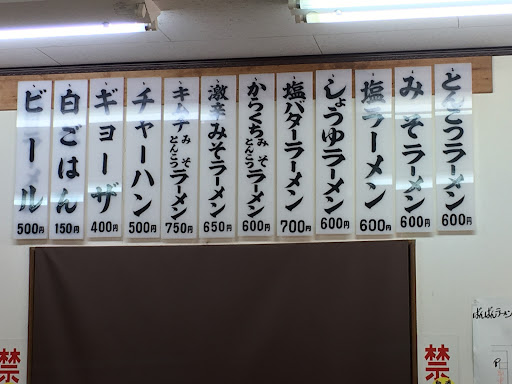 とんこつラーメン
600円
みそラーメン
600円
塩ラーメン
600円
しょうゆラーメン
600円
塩バターラーメン
700円
からくちみそとんこつラーメン
600円
激辛みそラーメン
650円
キムチみそとんこつラーメン
750円
チャーハン
500円
ギョーザ
400円
白ごはん
150円
ビール
500円
禁
禁
ばんばんラーメン